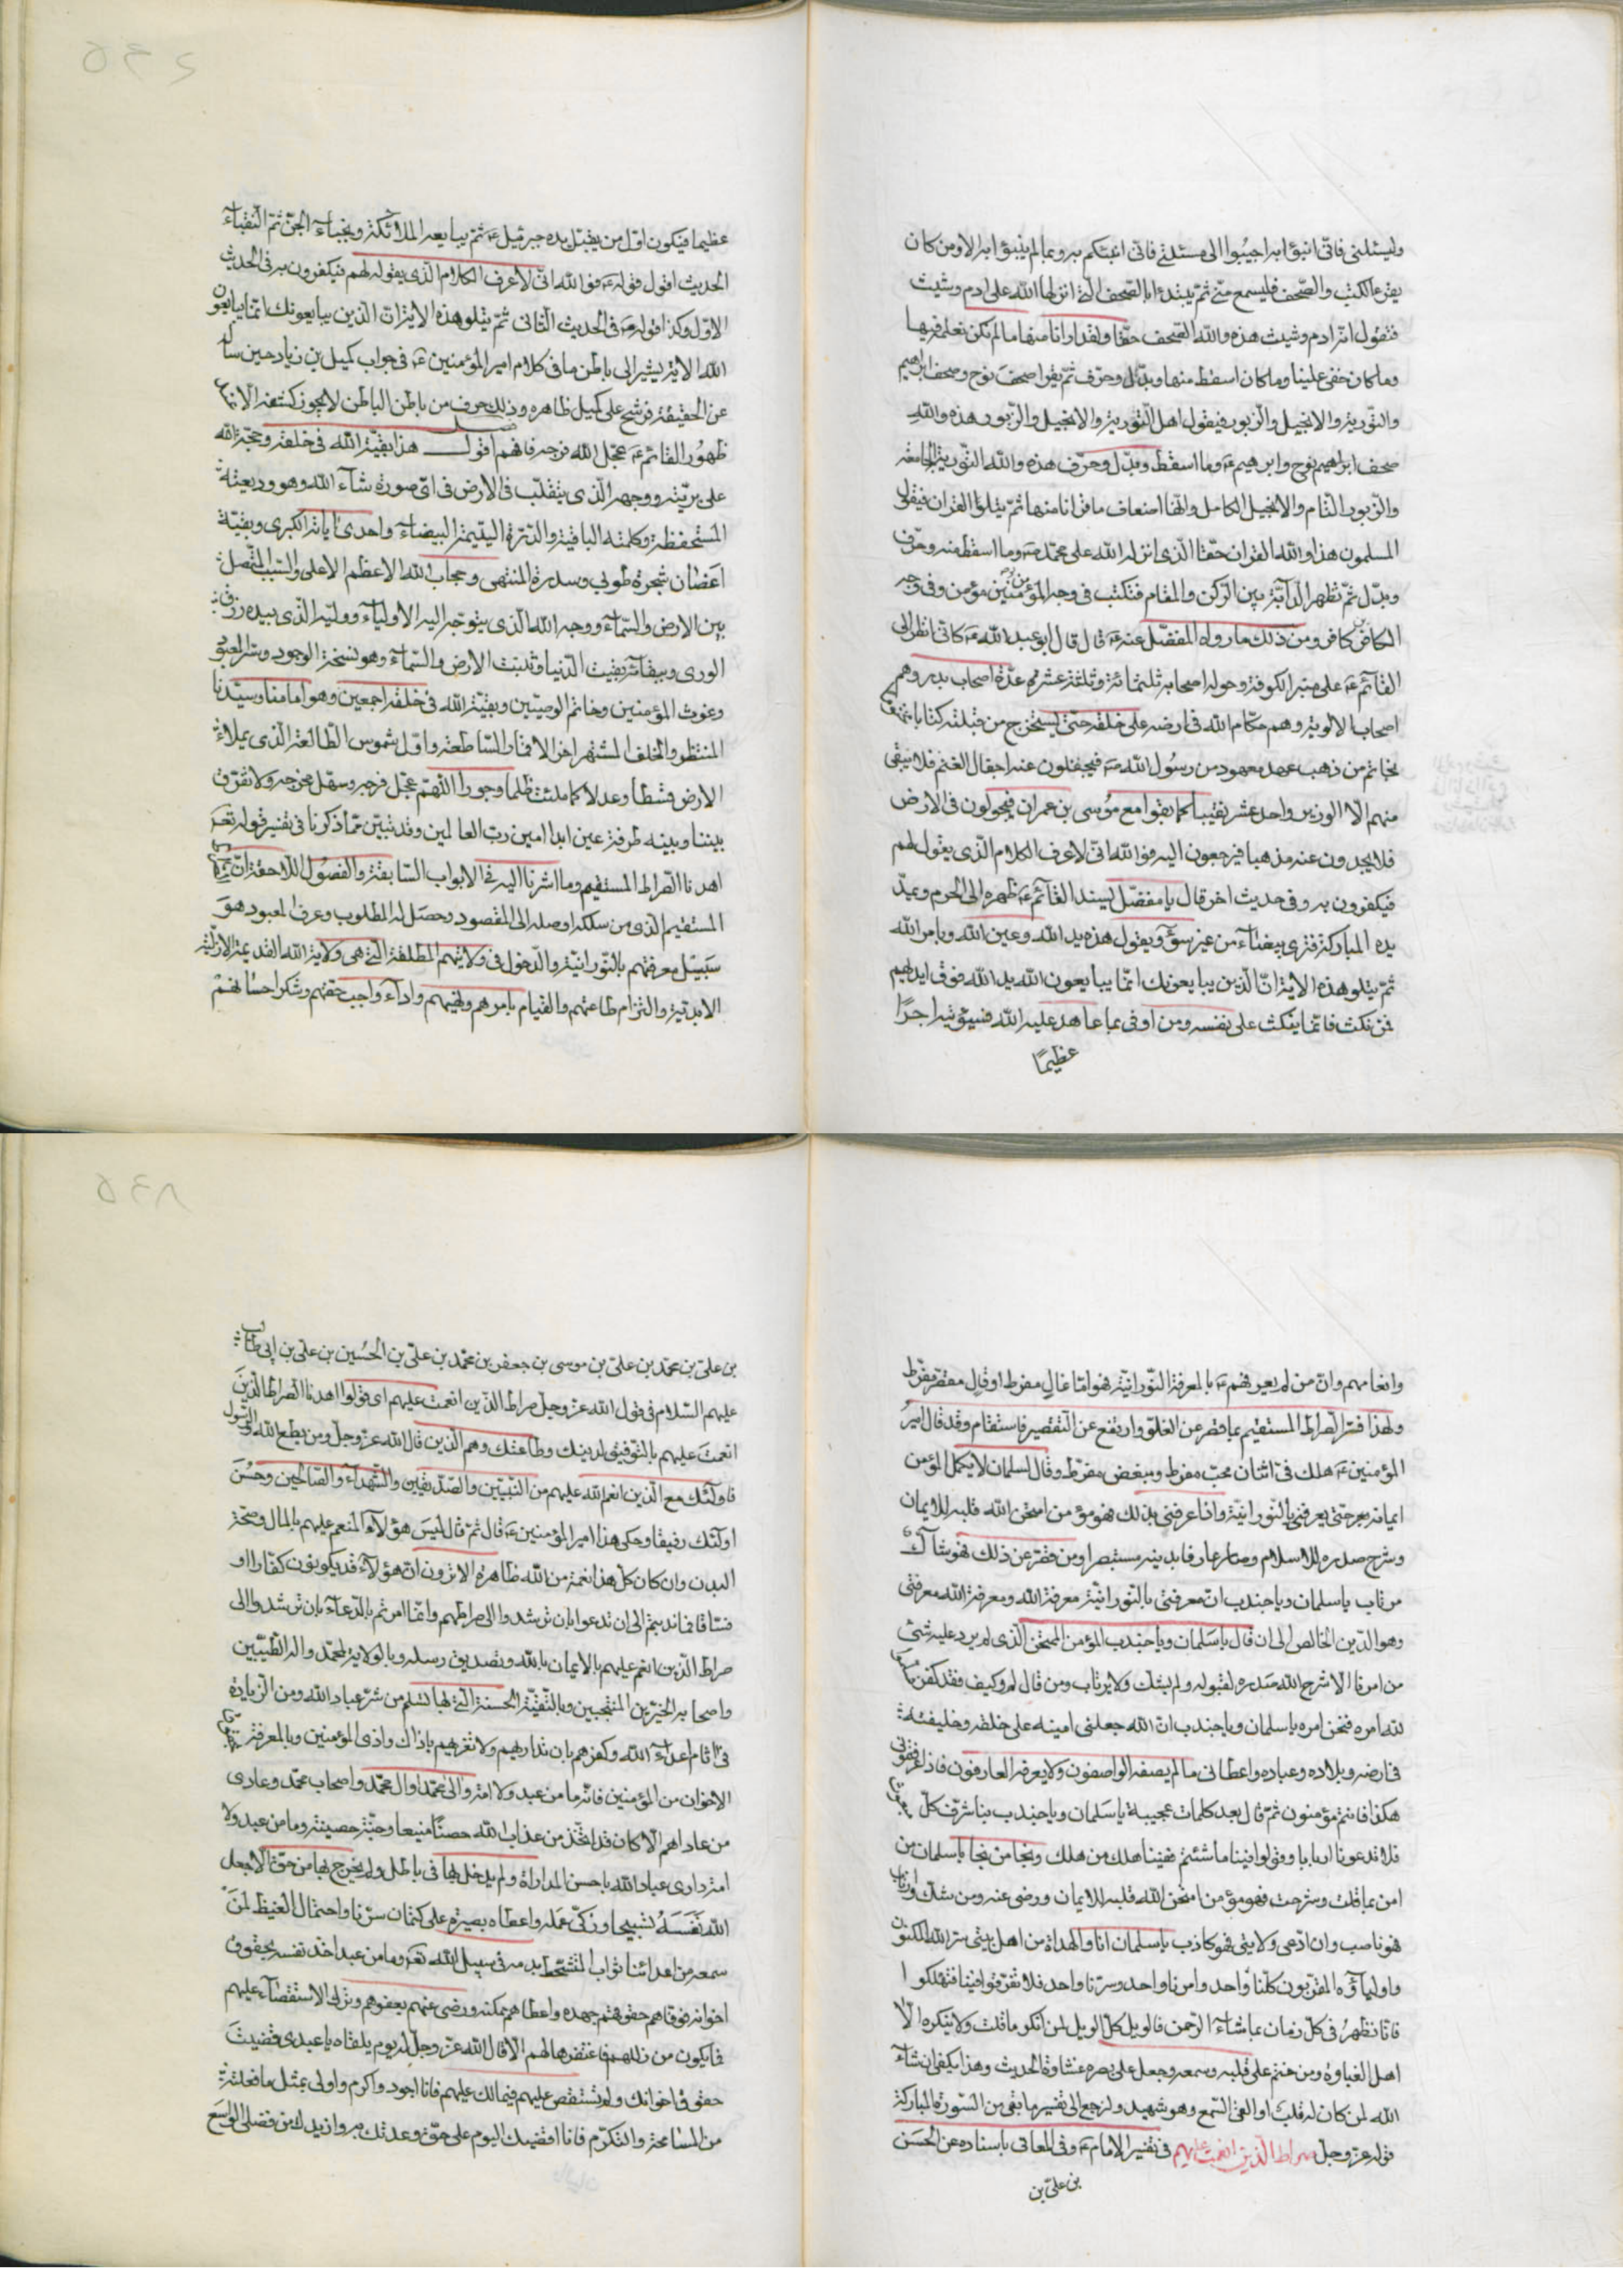 وليسئلني فانّي انبؤا به اجيبوا الى مسئلتي فانّي انبئكم به وبما لم ينبؤا به الا ومن كان
يقرء الكتب والصّحف فليسمع منّي ثمّ يبتدء بالصّحف الّتي انزلها الله على ادم وشيث
فتقول امّة ادم وشيث هذه والله الصّحف حقّا ولقد ارانا منها ما لم نكن نعلمه فيها
وما كان خفي علينا وما كان اسقط منها وبدّل وحرّف ثمّ يقرا صحف نوح وصحف ابراهيم
والتّورية والانجيل والزّبور فيقول اهل التّورية والانجيل والزّبور هذه والله
صحف ابراهيم نوح وابرهيم عَ وما اسقط وبدّل وحرّف هذه والله التّورية الجامعة
والزّبور التّام والانجيل الكامل وانّها اضعاف ما قرانا منها ثمّ يتلو القران فيقول
المسلمون هذا والله القران حقّا الّذي انزله الله على محمّد صَ وما اسقط منه وحرّف
وبدّل ثمّ تظهر الدّابّة بين الرّكن والمقام فتكتب في وجه المؤمنين مؤمن وفي وجه
الكافر كافر ومن ذلك ما رواه المفضّل عنه عَ قال قال ابو عبد الله عَ كانّي انظر الى
القآئم عَ على منبر الكوفة وحوله اصحابه ثلثمائة وثلثة عشر عدّة اصحاب بدر وهم
اصحاب الالوية وهم حكّام الله في ارضه على خلقه حتّى يستخرج من قبائه كتابا مختوما
بخاتم من ذهب عهد معهود من رسول الله صَ فيجفلون عنه اجفال الغنم فلا يبقى
منهم الّا الوزير واحد عشر نقيبا كما بقوا مع موسى بن عمران فيجولون في الارض
فلا يجدون عنه مذهبا فيرجعون اليه فوالله انّي لاعرف الكلام الّذي يقول لهم
فيكفرون به وفي حديث اخر قال يا مفضّل يسند القآئم عَ ظهره الى الحرم ويمدّ
يده المباركة فترى بيضآء من غير سوء ويقول هذه يد الله وعين الله وبامر الله
ثمّ يتلو هذه الاية انّ الّذين يبايعونك انّما يبايعون الله يد الله فوق ايديهم
فمن نكث فانّما ينكث على نفسه ومن اوفى بما عاهد عليه الله فسيؤتيه اجرًا
عظيمًا
٥٤٢
عظيما فيكون اوّل من يقبّل يده جبرئيل عَ ثمّ يبايعه الملائكة ونجباء الجنّ ثمّ النّقباء
الحديث اقول قوله عَ فوالله انّي لاعرف الكلام الّذي يقوله لهم فيكفرون به في الحديث
الاوّل وكذا قوله عَ في الحديث الثّاني ثمّ يتلو هذه الاية انّ الّذين يبايعونك انّما يبايعون
الله الاية يشير الى باطن ما في كلام امير المؤمنين عَ في جواب كميل بن زياد حين ساله
عن الحقيقة فرشح على كميل ظاهره وذلك حرف من باطن الباطن لا يجوز كشفه الّا
ظهور القائم عَ عجّل الله فرجه فافهم اقول هذا بقيّة الله في خلقه وحجّة الله
على بريّته ووجهه الّذي يتقلّب في الارض في ايّ صورة شآء الله وهو وديعته
المستحفظة وكلمته الباقية والدّرّة اليتيمة البيضآء واحدى اياته الكبرى وبقيّة
اغصان شجرة طوبى وسدرة المنتهى وحجاب الله الاعظم الاعلى والسّبب المتّصل
بين الارض والسّمآء ووجه الله الّذي يتوجّه اليه الاوليآء ووليّه الّذي بيده رزق
الورى وببقائه بقيت الدّنيا وثبتت الارض والسّمآء وهو نسخة الوجود وسرّ المعبود
وغوث المؤمنين وخاتم الوصيّين وبقيّة الله في خلقه اجمعين وهو امامنا وسيّدنا
المنتظر والخلف المشتهر اخر الاقمار السّاطعة واوّل شموس الطّالعة الّذي يملاء
الارض قسطا وعدلا كما ملئت ظلما وجورا اللّهمّ عجّل فرجه وسهّل مخرجه ولا تفرّق
بيننا وبينه طرفة عين ابدا امين ربّ العالمين وقد تبيّن ممّا ذكرنا في تفسير قوله تعَ
اهدنا الصّراط المستقيم وما اشرنا اليه في الابواب السّابقة والفصول اللاحقة انّ
المستقيم الّذي من سلكه اوصله الى المقصود وحصل له المطلوب وعرف المعبود هو
سبيل معرفتهم بالنّورانيّة والدّخول في ولايتهم المطلقة الّتي هي ولاية الله القديمة الازليّة
الابديّة والتزام طاعتهم والقيام بامرهم ونهيهم واداء واجب حقّهم وشكر احسانهم
وانعامهم وانّ من لم يعرفهم عَ بالمعرفة النّورانيّة فهو امّا غالٍ مفرط او قالٍ مقصّر مفرّط
ولهذا فسّر الصّراط المستقيم بما قصر عن الغلوّ وارتفع عن التّقصير فاستقام وقد قال امير
المؤمنين عَ هلك فيّ اثنان محبّ مفرط ومبغض مفرّط وقال لسلمان لا يكمل المؤمن
ايمانه حتّى يعرفني بالنّورانيّة واذا عرفني بذلك فهو مؤمن امتحن الله قلبه للايمان
وشرح صدره للاسلام وصار عارفا بدينه مستبصرا ومن قصر عن ذلك فهو شآكّ
مرتاب يا سلمان ويا جندب انّ معرفتي بالنّورانيّة معرفة الله ومعرفة الله معرفتي
وهو الدّين الخالص الى ان قال يا سلمان ويا جندب المؤمن الممتحن الّذي لم يرد عليه شئ
من امرنا الّا شرح الله صدره لقبوله ولم يشك ولا يرتاب ومن قال لم وكيف فقد كفر
لله امره فنحن امره يا سلمان ويا جندب انّ الله جعلني امينه على خلقه وخليفته
في ارضه وبلاده وعباده واعطاني ما لم يصفه الواصفون ولا يعرفه العارفون فاذا عرفتموني
هكذا فانتم مؤمنون ثمّ قال بعد كلمات عجيبة يا سلمان ويا جندب بنا شرّف كلّ
فلا تدعونا اربابا وقولوا فينا ما شئتم ففينا هلك من هلك ونجا من نجا يا سلمان من
امن بما قلت وشرحت فهو مؤمن امتحن الله قلبه للايمان ورضي عنه ومن شك وارتاب
فهو ناصب وان ادّعى ولايتي فهو كاذب يا سلمان انا والهداة من اهل بيتي سرّ الله المكنون
واولياؤه المقرّبون كلّنا واحد وامرنا واحد وسرّنا واحد فلا تفرّقوا فينا فتهلكوا
فانّا نظهر في كلّ زمان بما شاء الرّحمن فالويل كلّ الويل لمن انكر ما قلت ولا ينكره الّا
اهل الغباوة ومن ختم على قلبه وسمعه وجعل على بصره غشاوة الحديث وهذا يكفي ان شاء
الله لمن كان له قلب او القى السّمع وهو شهيد ولنرجع الى تفسير ما بقي من السّورة المباركة
قوله عزّ وجلّ صراط الّذين انعمت عليهم في تفسير الامام عَ وفي المعاني باسناده عن الحسن
بن عليّ بن
٥٤٨
بن عليّ بن محمّد بن عليّ بن موسى بن جعفر بن محمّد بن عليّ بن الحسين بن عليّ بن ابي طالب
عليهم السّلام في قول الله عزّ وجلّ صراط الّذين انعمت عليهم اي قولوا اهدنا الصّراط الّذين
انعمت عليهم بالتّوفيق لدينك وطاعتك وهم الّذين قال الله عزّ وجلّ ومن يطع الله والرّسول
فاولئك مع الّذين انعم الله عليهم من النّبيّين والصّدّيقين والشّهدآء والصّالحين وحسن
اولئك رفيقا وحكي هذا امير المؤمنين عَ قال ثمّ قال ليس هؤلآء المنعم عليهم بالمال وصحّة
البدن وان كان كلّ هذا نعمة من الله ظاهرة الا ترون انّ هؤلآء قد يكونون كفّارا او
فسّاقا فما ندبتم الى ان تدعوا بان ترشدوا الى صراطهم وانّما امرتم بالدّعآء بان ترشدوا الى
صراط الّذين انعم عليهم بالايمان بالله وتصديق رسله وبالولاية لمحمّد واله الطّيّبين
واصحابه الخيّرين المنتجبين وبالتّقيّة الحسنة الّتي بها يسلم من شرّ عباد الله ومن الزّيادة
في اثام اعداء الله وكفرهم بان تداريهم ولا تغريهم باذاك واذى المؤمنين وبالمعرفة
الاخوان من المؤمنين فانّه ما من عبد ولا امة والى محمّدا وال محمّد واصحاب محمّد وعادى
من عاداهم الّا كان قد اتّخذ من عذاب الله حصنًا منيعا وجنّة حصينة وما من عبد ولا
امة دارى عباد الله باحسن المداراة ولم يدخل بها في باطل ولم يخرج بها من حقّ الّا جعل
الله نَفَسَهُ تسبيحا وزكّى عمله واعطاه بصيرة على كتمان سرّنا واحتمال الغيظ لمن
سمعه من اعدائنا ثواب المتشحّط بدمه في سبيل الله تعَ وما من عبد اخذ نفسه بحقوق
اخوانه فوفاهم حقوقهم جهده واعطاهم ممكنه ورضي عنهم بعفوهم وترك الاستقصآء عليهم
فيما يكون من زللهم فاغتفرها لهم الّا قال الله عزّ وجلّ له يوم يلقاه يا عبدي قضيت
حقوق اخوانك ولم تستقص عليهم فيما لك عليهم فانا اجود واكرم واولى بمثل ما فعلته
من المسامحة والتّكرّم فانا اقضيك اليوم على حقّ وعدتك به وازيدك من فضلي الواسع